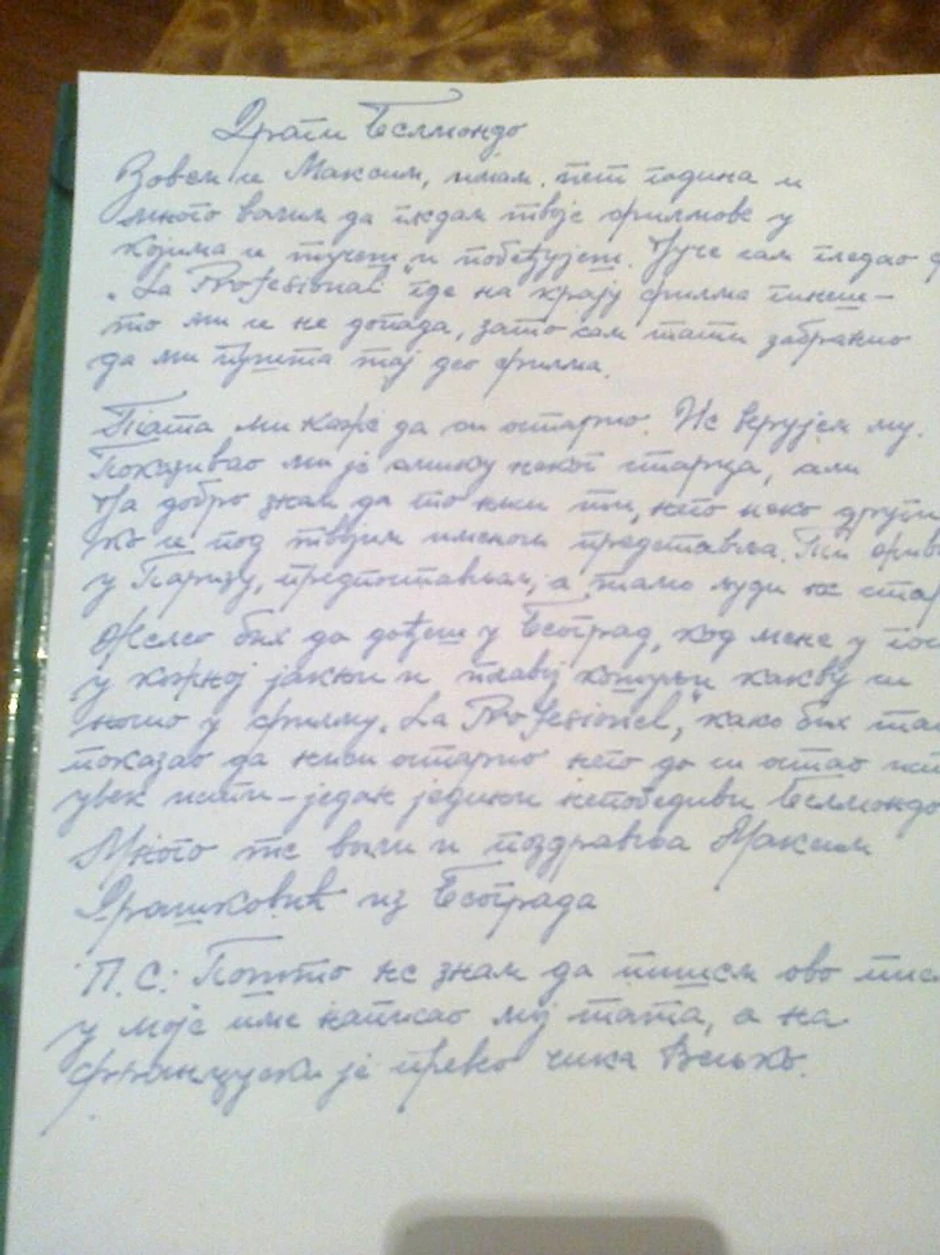 Драги Белмондо
Зовем се Максим, имам пет година и
много волим да гледам твоје филмове у
којима се тучеш и побеђујеш. Јуче сам гледао ф
„La Profesional" где на крају филма гинеш –
то ми се не допада, зато сам тати забранио
да ми пушта тај део филма.
Тата ми каже да си остарио. Не верујем му.
Показивао ми је слику неког старца, али
Ја добро знам да то ниси ти, него неко други
ко се под твојим именом представља. Ти живи
у Паризу, претпостављам, а тамо људи не стар
Желео бих да дођеш у Београд, код мене у гос
у кожној јакни и плавој кошуљи какву си
носио у филму „La Profesionel", како бих тат
показао да ниси остарио него да си остао ист
увек исти – један једини непобедиви Белмондо
Много те воли и поздравља Максим
Драшковић из Београда
П.С. Пошто не знам да пишем ово пис
у моје име написао мој тата, а на
француски је превео чика Вељко.